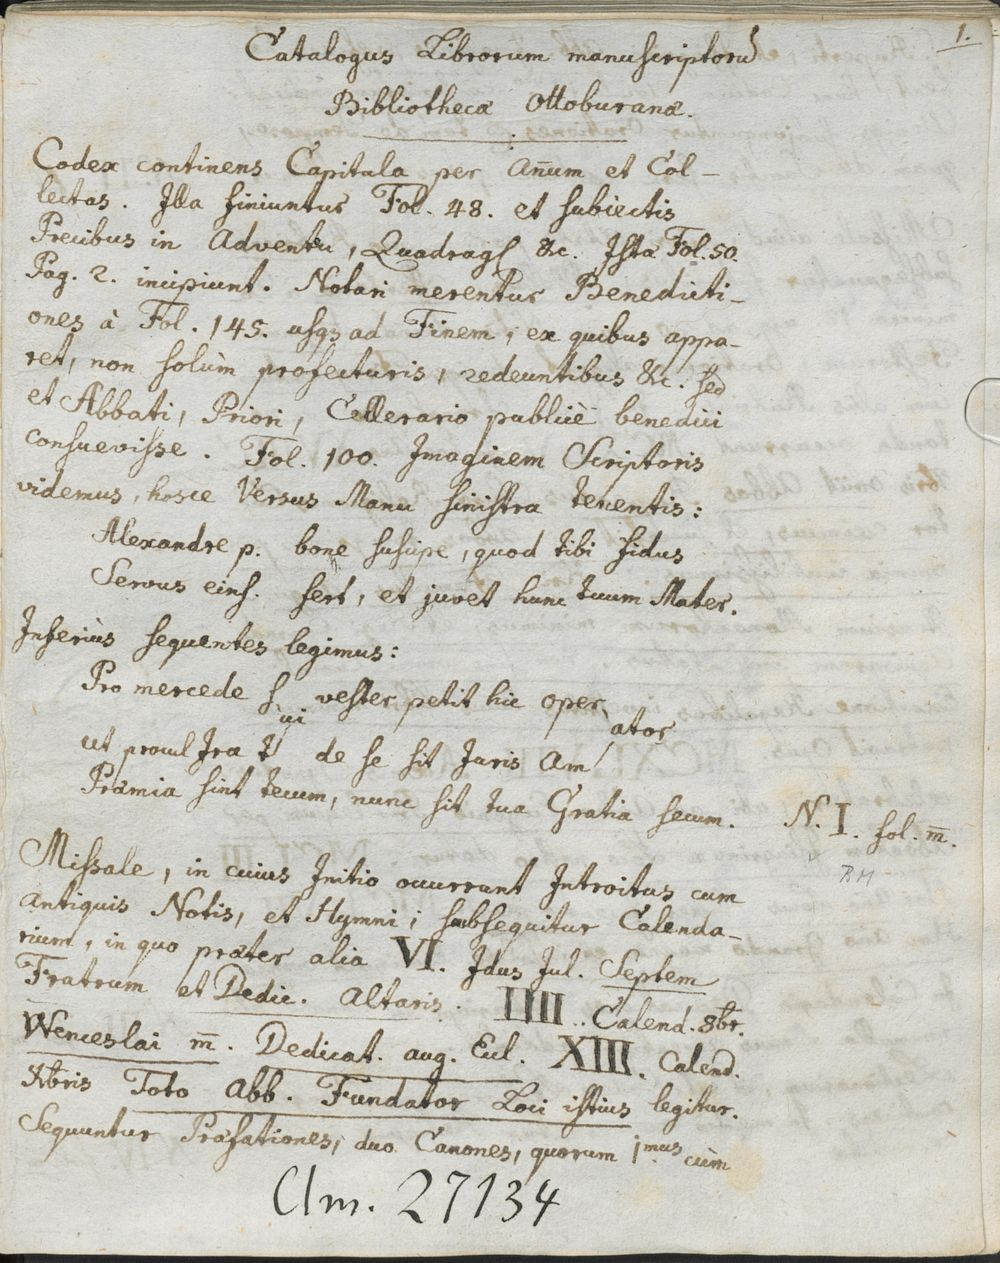 1.
Catalogus Librorum manuscriptorū
Bibliothecæ Ottoburanæ.
Codex continens Capitula per Añum et Col-
lectas. Illa finiuntur Fol. 48. et subiectis
Precibus in Adventu, Quadrag &c. Ista Fol. 50.
Pag. 2. incipiunt. Notari merentur Benedicti-
ones à Fol. 145. usq ad Finem, ex quibus appa-
ret, non solùm profecturis, redeuntibus &c. sed
et Abbati, Priori, Cellerario publicè benedici
consuevisse. Fol. 100. Imaginem Scriptoris
videmus, hosce Versus Manu sinistra tenentis:
Alexandre p. bone suscipe, quod tibi fidus
Servus eius. fert, et juvet hunc tuum Mater.
Inferiùs sequentes legimus:
Pro mercede s vester petit hic oper,
ui ator
ut procul Ira t de se sit Juris Am
Præmia sint tecum, nunc sit tua Gratia secum. N. I. fol. m̄.
BM
Missale, in cuius Initio occurrunt Introitus cum
Antiquis Notis, et Hymni; subsequitur Calenda-
rium, in quo præter alia VI. Idus Jul. Septem
Fratrum et Dedic. Altaris. IIII. Calend. 8br.
Wenceslai m̄. Dedicat. aug. Eccl. XIII. Calend.
Xbris Toto Abb. Fundator Loci istius legitur.
Sequuntur Præfationes, duo Canones, quorum 1mus cùm
Clm. 27134